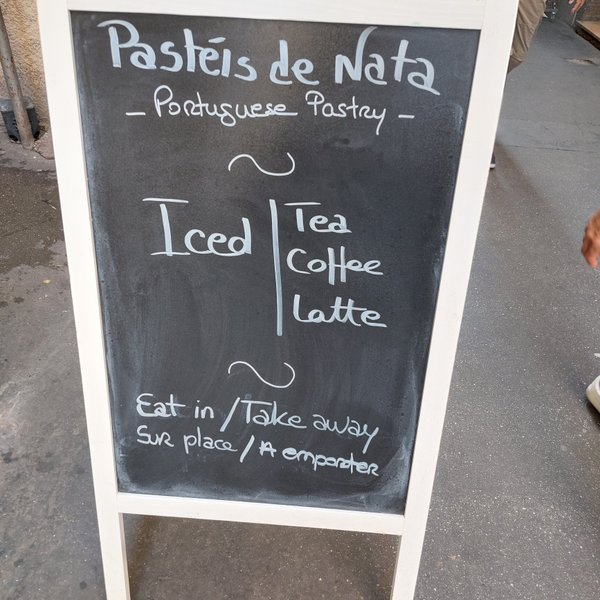 Pastéis de Nata
- Portuguese Pastry -
~
Iced | Tea
Coffee
Latte
~
Eat in / Take away
Sur place / A emporter